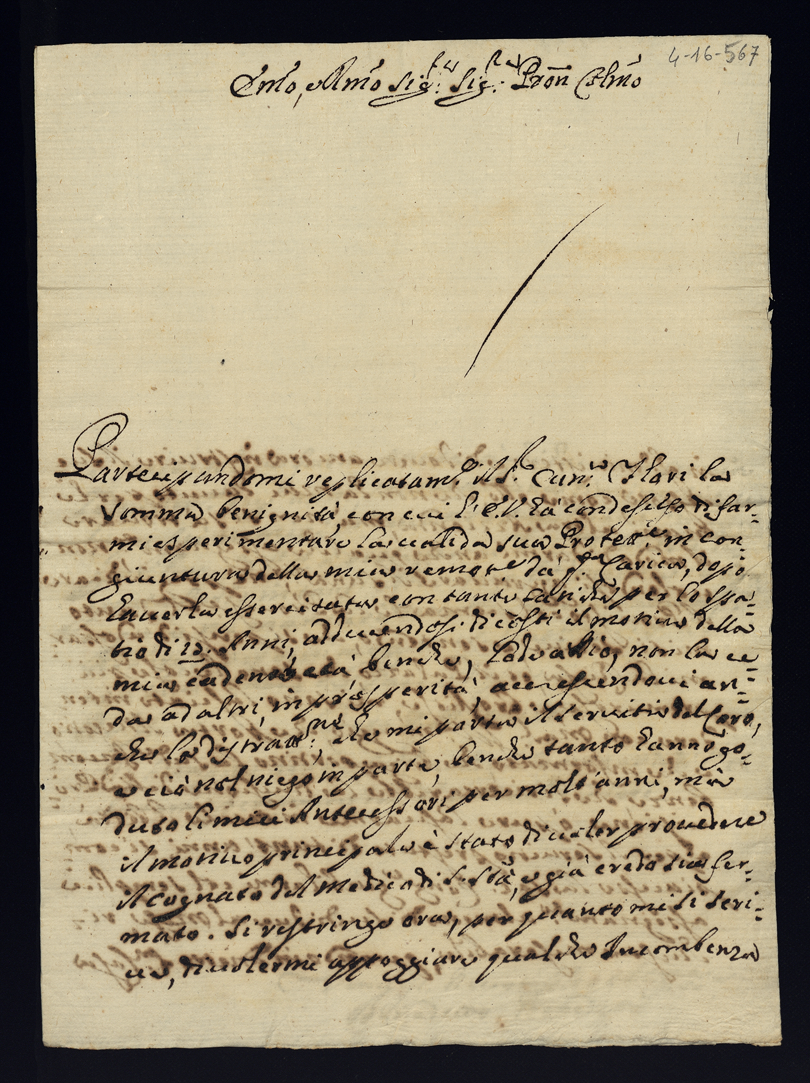 4-16-567
Em̄o, e Rm̄o Sig.r Sig.r Pron̄ Col̄mo
Partecipandomi replicatam.e il S.r Can.co Ilari la
somma benignità, con cui l'E.V. hà condesceso di far-
mi esperimentare la valida sua Protett.e in con-
giuntura della mia remot.e da q.ta Carica, dopo
haverla essercitata con tanta per lo spa-
tio di 12. Anni, adducendosi di costì il motivo della
mia cadente età benche, lode a Dio, non la ce-
da ad altri, in prosperità, accrescendovi an-
che la distratt.ne, che mi porta il servitio del Coro,
e ciò nol niego in parte, benche tanto hanno go-
duto li miei Antecessori per molt'anni, mà
il motivo principale è stato di voler provedere
il cognato del Medico di S. Stà, e già credo sia fer-
mato. Si restringe ora, per quanto mi si scri-
ve, di volermi appoggiare qualche Incombenza